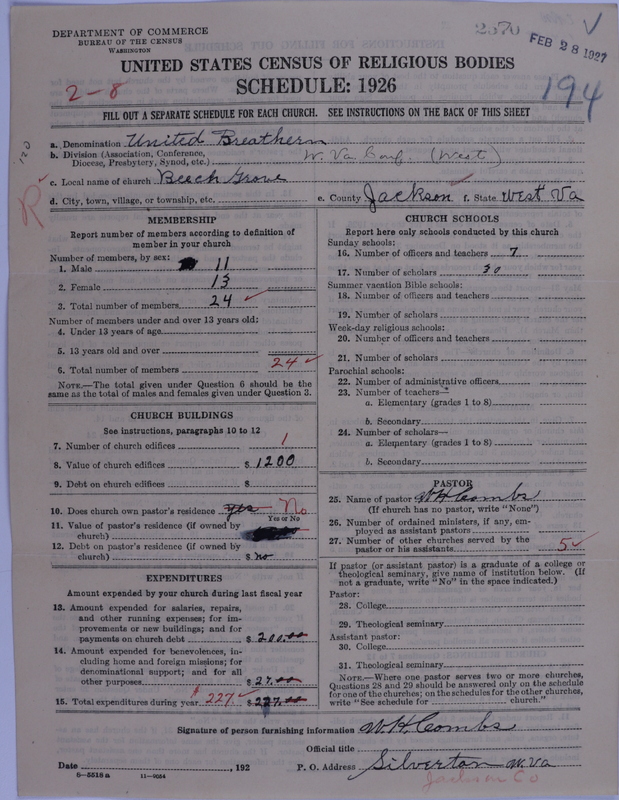 2570
FEB 28 1927
DEPARTMENT OF COMMERCE
BUREAU OF THE CENSUS
WASHINGTON
UNITED STATES CENSUS OF RELIGIOUS BODIES
SCHEDULE: 1926
2-8
194
FILL OUT A SEPARATE SCHEDULE FOR EACH CHURCH. SEE INSTRUCTIONS ON THE BACK OF THIS SHEET
120
a. Denomination United Breathern
b. Division (Association, Conference, Diocese, Presbytery, Synod, etc.) W. Va Conf. (West)
c. Local name of church Beech Grove
d. City, town, village, or township, etc. e. County Jackson f. State West Va
R
MEMBERSHIP
Report number of members according to definition of
member in your church
Number of members, by sex:
1. Male 11
2. Female 13
3. Total number of members 24
Number of members under and over 13 years old:
4. Under 13 years of age
5. 13 years old and over
6. Total number of members 24
NOTE.—The total given under Question 6 should be
same as the total of males and females given under Question 3.
CHURCH BUILDINGS
See instructions, paragraphs 10 to 12
7. Number of church edifices 1
8. Value of church edifices $ 1200
9. Debt on church edifices $
10. Does church own pastor's residence yes No
Yes or No
11. Value of pastor's residence (if owned by
church)
12. Debt on pastor's residence (if owned by
church) $ no
EXPENDITURES
Amount expended by your church during last fiscal year
13. Amount expended for salaries, repairs,
and other running expenses; for im-
provements or new buildings; and for
payments on church debt $ 200.00
14. Amount expended for benevolences, in-
cluding home and foreign missions; for
denominational support; and for all
other purposes $ 27.00
15. Total expenditures during year $ 227. $ 227.00
CHURCH SCHOOLS
Report here only schools conducted by this church
Sunday schools:
16. Number of officers and teachers 7
17. Number of scholars 30
Summer vacation Bible schools:
18. Number of officers and teachers
19. Number of scholars
Week-day religious schools:
20. Number of officers and teachers
21. Number of scholars
Parochial schools:
22. Number of administrative officers
23. Number of teachers—
a. Elementary (grades 1 to 8)
b. Secondary
24. Number of scholars—
a. Elementary (grades 1 to 8)
b. Secondary
PASTOR
25. Name of pastor W H Combs
(If church has no pastor, write "None")
26. Number of ordained ministers, if any, em-
ployed as assistant pastors
27. Number of other churches served by the
pastor or his assistants 5
If pastor (or assistant pastor) is a graduate of a college or
theological seminary, give name of institution below. (If
not a graduate, write "No" in the space indicated.)
Pastor:
28. College
29. Theological seminary
Assistant pastor:
30. College
31. Theological seminary
NOTE.—Where one pastor serves two or more churches,
Questions 28 and 29 should be answered only on the schedule
for one of the churches; on the schedules for the other churches,
write "See schedule for church."
Signature of person furnishing information W. H. Combs
Official title
Date , 192 P. O. Address Silverton W. Va
6-5518a 11-9054
Jackson Co